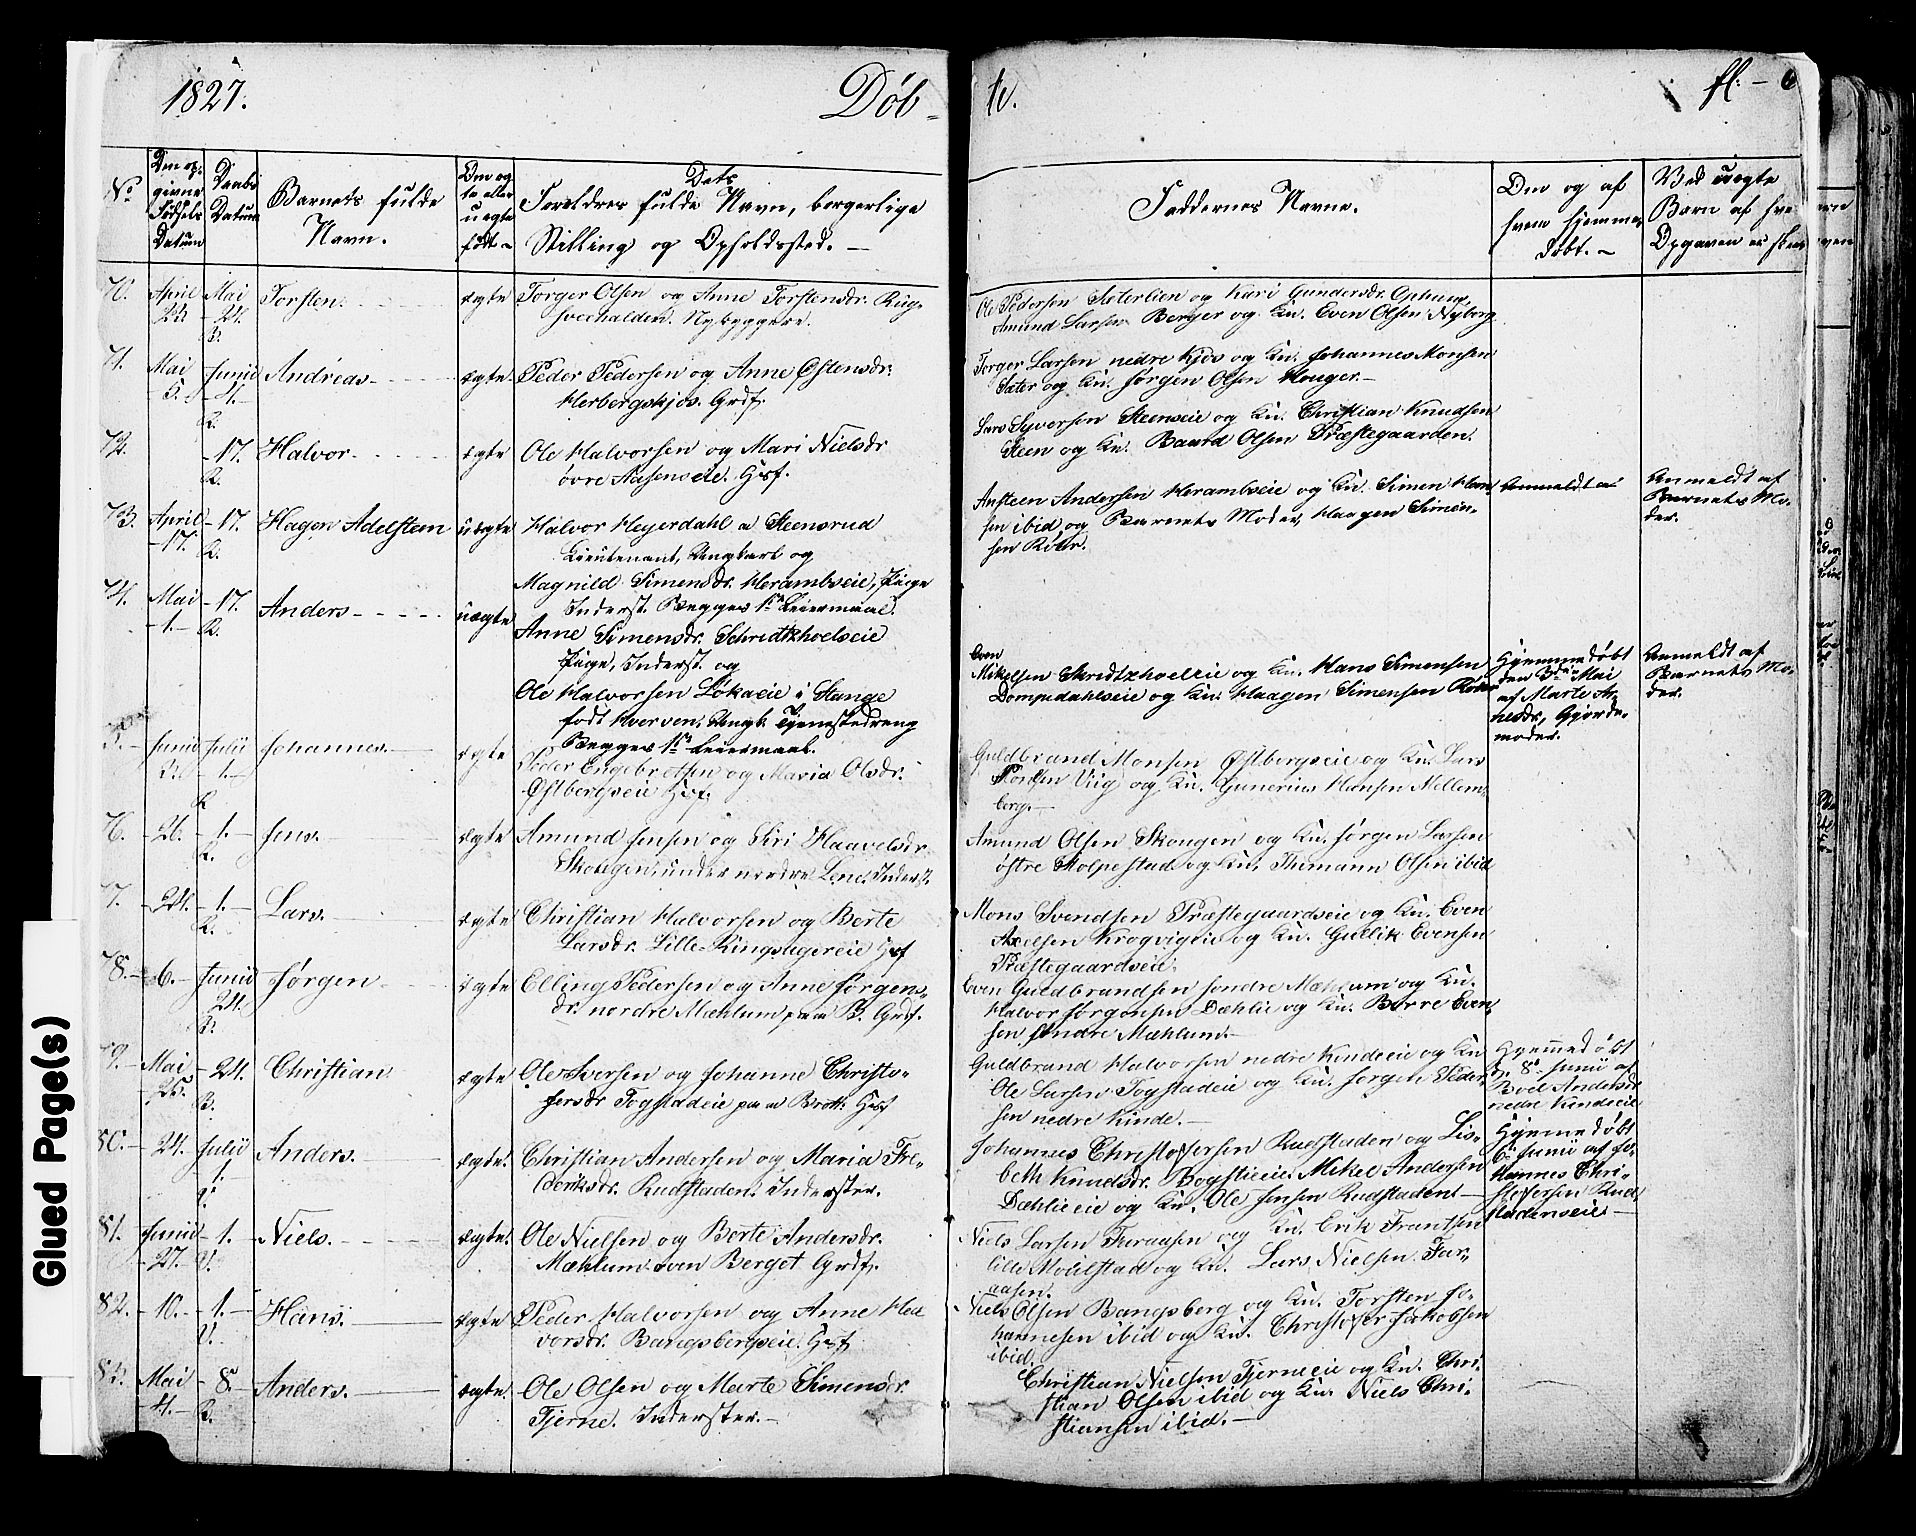 1827.
Døb-
te.
fl: - 6
No
Den op-
givne
Fødsels
Datum
Daabs
Datum
Barnets fulde
Navn.
Om æg
te eller
uægte
født
Dets
Foreldres fulde Navn, borgerlige
Stilling og Opholdssted. -
Faddernes Navne.
Om og af
hvem hjemme
døbt. -
Ved uægte
Barn af hve
Opgaven er skeet
70. April Mai Torsten. ægte Torger Olsen og Anne Torstensdr. Rug-
24.
hverhalden. Nybyggere.
Ole Pedersen Sæterlien og Kari Gundersdr. Ophuug,
Amund Larsen Berger og Ku. Even Olsen Nyberg
71. Mai Junii Andreas ægte. Peder Pedersen og Anne Østensdr.
5.
Herbergskjøs. Grdf.
R.
Torger Larsen nedre Kjøs og Ku. Johannes Monsen
Sæter og Ku. Jørgen Olsen Houger. -
72. - 17. Halvor ægte Ole Halvorsen og Mari Nielsdr
R.
øvre Aasenseie. Hsf.
Lars Syversen Steenseie og Ku. Christian Knudsen
Steen og Ku. Baard Olsen Præstegaarden.
73. April - 17. Hagen Adelsten uægte Halvor Heyerdahl a Steensrud
- 17. R.
Lieutenant, Ungkarl og
Magnild Simensdr. Herambseie, Pige
Inderst. Begges 1ste Leiermaal.
Ansteen Andersen Herambseie og Ku. Simen Han-
sen ibid og Barnets Moder, Haagen Simen-
sen Roter.
Anmeldt a
Anmeldt af
Barnets Mo-
der.
74. Mai - 17. Anders uægte
- 1. - R.
Anne Simensdr. Schredtzhoelseie
Pige, Inderst og
Ole Halvorsen Løkaeie i Stange
født Hverven, Ungk. Tjenestedreng
Begges 1ste Leiermaal.
Even
Mikelsen Skredtzhoelseie og Ku. Hans Simensen
Dompedahlseie og Ku. Haagen Simensen Roter
Hjemmedøbt
den 3die Mai
af Marte Ar-
nesdr, Gjorde-
moder.
Anmeldt af
Barnets Mo-
der.
5. - Junii Julii Johannes. ægte Peder Engebretsen og Maria Olsdr.
- 1. -
R
Østbergseie Hsf.
Guldbrand Monsen Østbergseie og Ku. Lars
Poulsen Viig og Ku. Gunerius Hansen Mellem-
berg. -
76. - 26. - 1. - Jens. ægte Amund Jensen og Siri Haavelsdr.
R.
Skougen, under nordre Lene. Inderst.
Amund Olsen Skougen og Ku. Jørgen Larsen
østre Stolpestad og Ku. Thimann Olsen ibid
77. - 24. - 1. - Lars. ægte Christian Halvorsen og Berte
R.
Larsdr. Lille-Ringsagereie Hsf
Mons Svendsen Præstegaardseie og Ku. Even
Axelsen Krogvigeie og Ku. Gullik Evensen
Præstegaardseie.
78. - 6. - Junii Jørgen ægte Elling Pedersen og Anne Jørgens-
24.
R.
dr. nordre Mæhlum paa B. Grdf.
Even Guldbrandsen søndre Mæhlum og Ku.
Halvor Jørgensen Dæhlie og Ku. Børre Even-
sen søndre Mæhlum. -
79. - Mai - 24. Christian ægte Ole Iversen og Johanne Christo-
25. B.
fersdr Togstadeie paa Brott. Hsf
Guldbrand Halvorsen nedre Kindeeie og Ku
Ole Larsen Togstadeie og Ku. Jørgen Peder-
sen nedre Kinde. -
Hjemmedøbt
d. 8de Junii af
Boel Andersdr
nedre Kindeeie
80. - 24. Julii Anders. ægte. Christian Andersen og Maria Fre-
1.
deriksdr. Rudstaden. Inderster.
Johannes Christofersen Rudstaden og Lis-
beth Knudsdr. Bogstieie. Mikel Andersen
Dæhlieeie og Ku. Ole Jensen Rudstaden -
Hjemmedøbt
6te Junii af Jo-
hannes Chri-
stofersen Rud
stadenseie. -
81. Junii - 1. - Niels. ægte. Ole Nielsen og Berte Andersdr.
27. U.
Mæhlum oven Berget Grdf.
Niels Larsen Furaasen og Ku. Erik Frantsen
lille Molilstad og Ku. Lars Nielsen Fur-
aasen.
82. - 10. - 1. - Hans. ægte Peder Halvorsen og Anne Hal
U.
vorsdr. Bangsbergseie. Hsf
Niels Olsen Bangsberg og Ku. Torsten Jo-
hannesen ibid og Ku. Christofer Jakobsen
ibid.
83. Mai - 8. - Anders. ægte. Ole Olsen og Marte Simensdr.
- 4. - R.
Tjerne. Inderster. -
Christian Nielsen Tjerneeie og Ku. Chri-
stian Olsen ibid og Ku. Niels Chri-
stiansen ibid. -
Glued Page(s)